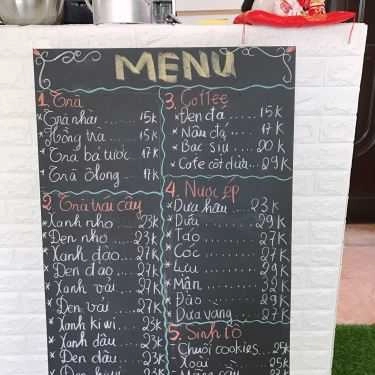 MENU
1. Trà
* Trà nhài ...... 15k
* Hồng trà ..... 15k
* Trà bá tước .. 17k
* Trà ôlong .... 17k
2. Trà trái cây
Xanh nho ... 23k
Đen nho ... 23k
Xanh đào ... 27k
Đen đào ... 27k
Xanh vải ... 27k
Đen vải ... 27k
Xanh kiwi ... 23k
Xanh dâu ... 23k
Đen dâu ... 23k
3. Coffee
* Đen đá ..... 15k
* Nâu đá ..... 17k
* Bạc sỉu .... 20k
* Cafe cốt dừa .. 29k
4. Nước ép
* Dưa hấu .... 23k
* Dứa ..... 29k
* Táo ..... 27k
* Cóc ..... 27k
* Lựu ..... 29k
* Mận ..... 32k
* Đào ..... 29k
* Dưa vàng .... 27k
5. Sinh tố
* Chuối cookies... 25k
* Xoài ..... 25k